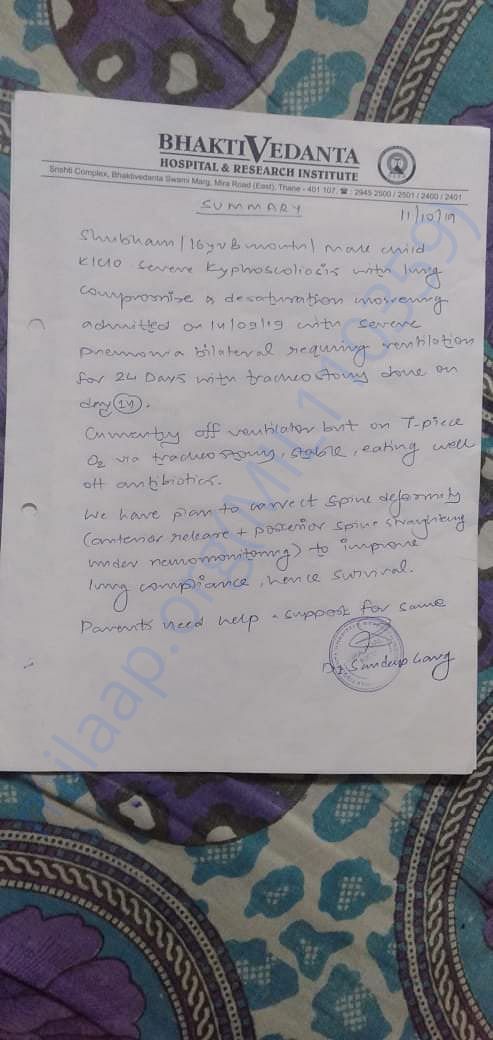 BHAKTIVEDANTA
HOSPITAL & RESEARCH INSTITUTE
Srishti Complex, Bhaktivedanta Swami Marg, Mira Road (East), Thane - 401 107. ☎ : 2945 2500 / 2501 / 2400 / 2401
SUMMARY
11/10/19
Shubham / 16yr 8 month / male child
K/C/O severe Kyphoscoliosis with lung
compromise & desaturation
admitted on 14/09/19 with severe
pneumonia bilateral requiring ventilation
for 24 Days with tracheostomy done on
day 14.
Currently off ventilator but on T-piece
O2 via tracheostomy, stable, eating well
off antibiotics.
We have plan to correct spine deformity
(anterior release + posterior spine straightening
under neuromonitoring) to improve
lung compliance, hence survival.
Parents need help & support for same
Dr. Sandeep Garg
milaap.org(MIL110359)